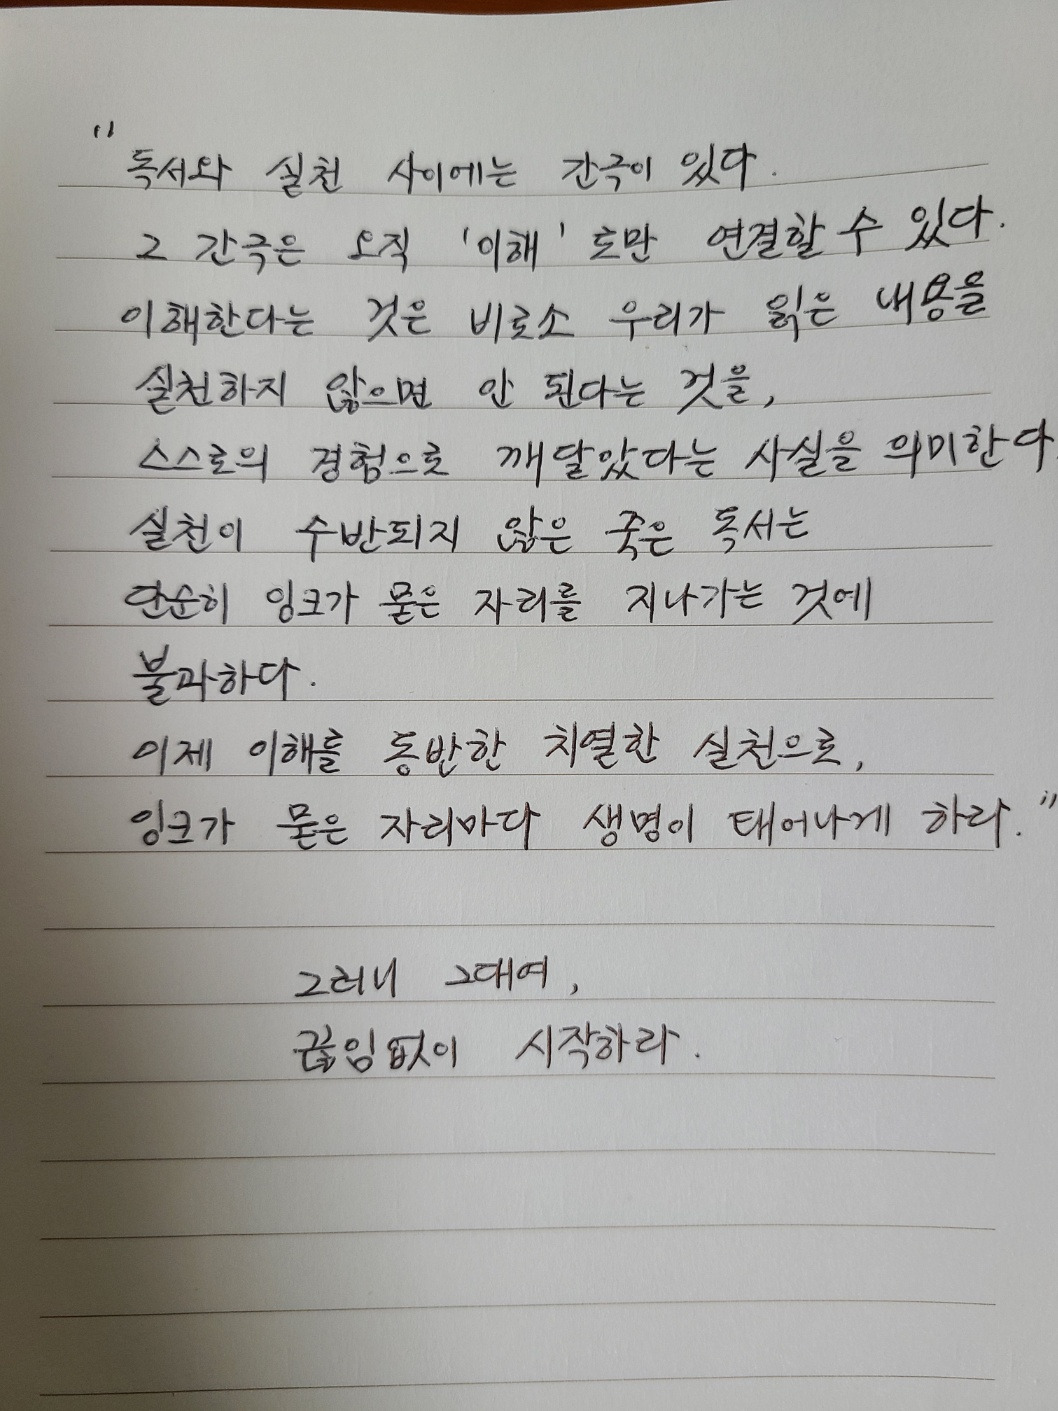 "독서와 실천 사이에는 간극이 있다.
그 간극은 오직 '이해'로만 연결할 수 있다.
이해한다는 것은 비로소 우리가 읽은 내용을
실천하지 않으면 안 된다는 것을,
스스로의 경험으로 깨달았다는 사실을 의미한다.
실천이 수반되지 않은 죽은 독서는
단순히 잉크가 묻은 자리를 지나가는 것에
불과하다.
이제 이해를 동반한 치열한 실천으로,
잉크가 묻은 자리마다 생명이 태어나게 하라."
그러니 그대여,
끊임없이 시작하라.